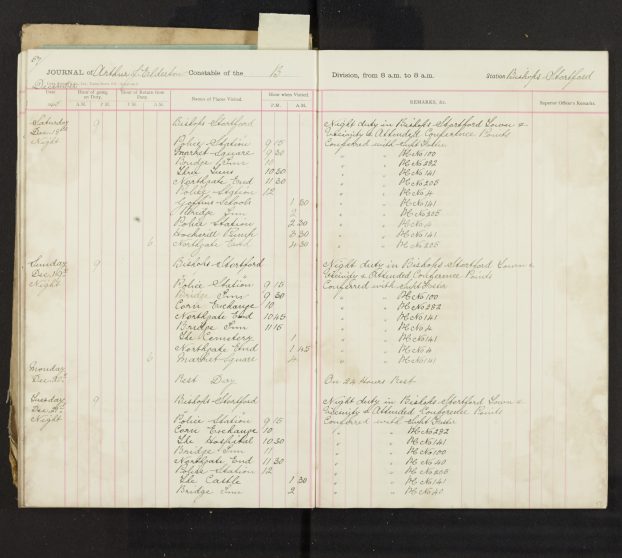 67
JOURNAL of Arthur S. Elderton Constable of the B Division, from 8 a.m. to 8 a.m. Station Bishops Stortford
December
Date Hour of going on Duty. Hour of Return from Duty. Names of Places Visited. Hour when Visited. REMARKS, &c. Superior Officer's Remarks.
A.M. P.M. A.M. P.M. P.M. A.M.
Saturday 9 Bishops Stortford Night duty in Bishops Stortford Town &
Dec 18th Vicinity & Attended Conference Points
Night Police Station 9 15 Conferred with Supt Foster
Market Square 9 30 " " PC No 100
Bridge Inn 10 " " PC No 292
Star Inns 10 30 " " PC No 141
Northgate End 11 30 " " PC No 205
Police Station 12 " " PC No 4
Schools 1 30 " " PC No 141
Bridge Inn 2 " " PC No 205
Police Station 2 30 " " PC No 4
Hockerill Pump 3 30 " " PC No 141
6 Northgate End 4 30 " " PC No 205
Sunday 9 Bishops Stortford Night duty in Bishops Stortford Town &
Dec 19th Vicinity & Attended Conference Points
Night Police Station 9 15 Conferred with Supt Foster
Bridge Inn 9 30 " " PC No 100
Corn Exchange 10 " " PC No 292
Northgate End 10 45 " " PC No 141
Bridge Inn 11 15 " " PC No 4
The Cemetery 1 " " PC No 141
Northgate End 1 45 " " PC No 4
6 Market Square 4 " " PC No 141
Monday
Dec 20th Rest Day On 24 Hours Rest
Tuesday 9 Bishops Stortford Night duty in Bishops Stortford Town &
Dec 21st Vicinity & Attended Conference Points
Night Police Station 9 15 Conferred with Supt Foster
Corn Exchange 10 " " PC No 292
The Hospital 10 30 " " PC No 141
Bridge Inn 11 " " PC No 100
Northgate End 11 30 " " PC No 40
Police Station 12 " " PC No 205
The Castle 1 30 " " PC No 141
Bridge Inn 2 " " PC No 40